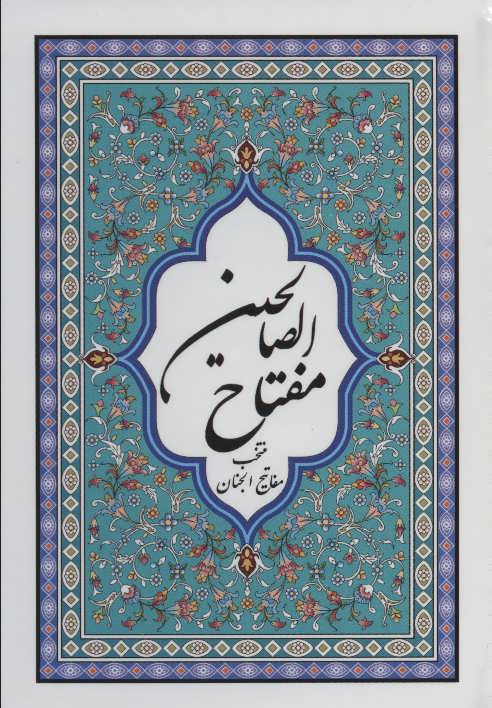 مفتاح الصالحین
منتخب
مفاتیح الجنان